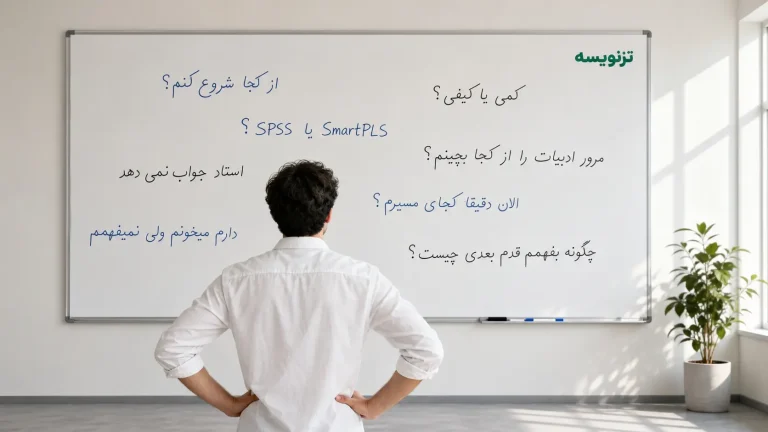 تزنویسه
کمی یا کیفی؟
از کجا شروع کنم؟
SPSS یا SmartPLS ؟
مرور ادبیات را از کجا بچینم؟
استاد جواب نمی دهد
الان دقیقا کجای مسیرم؟
دارم میخونم ولی نمیفهمم
چگونه بفهمم قدم بعدی چیست؟